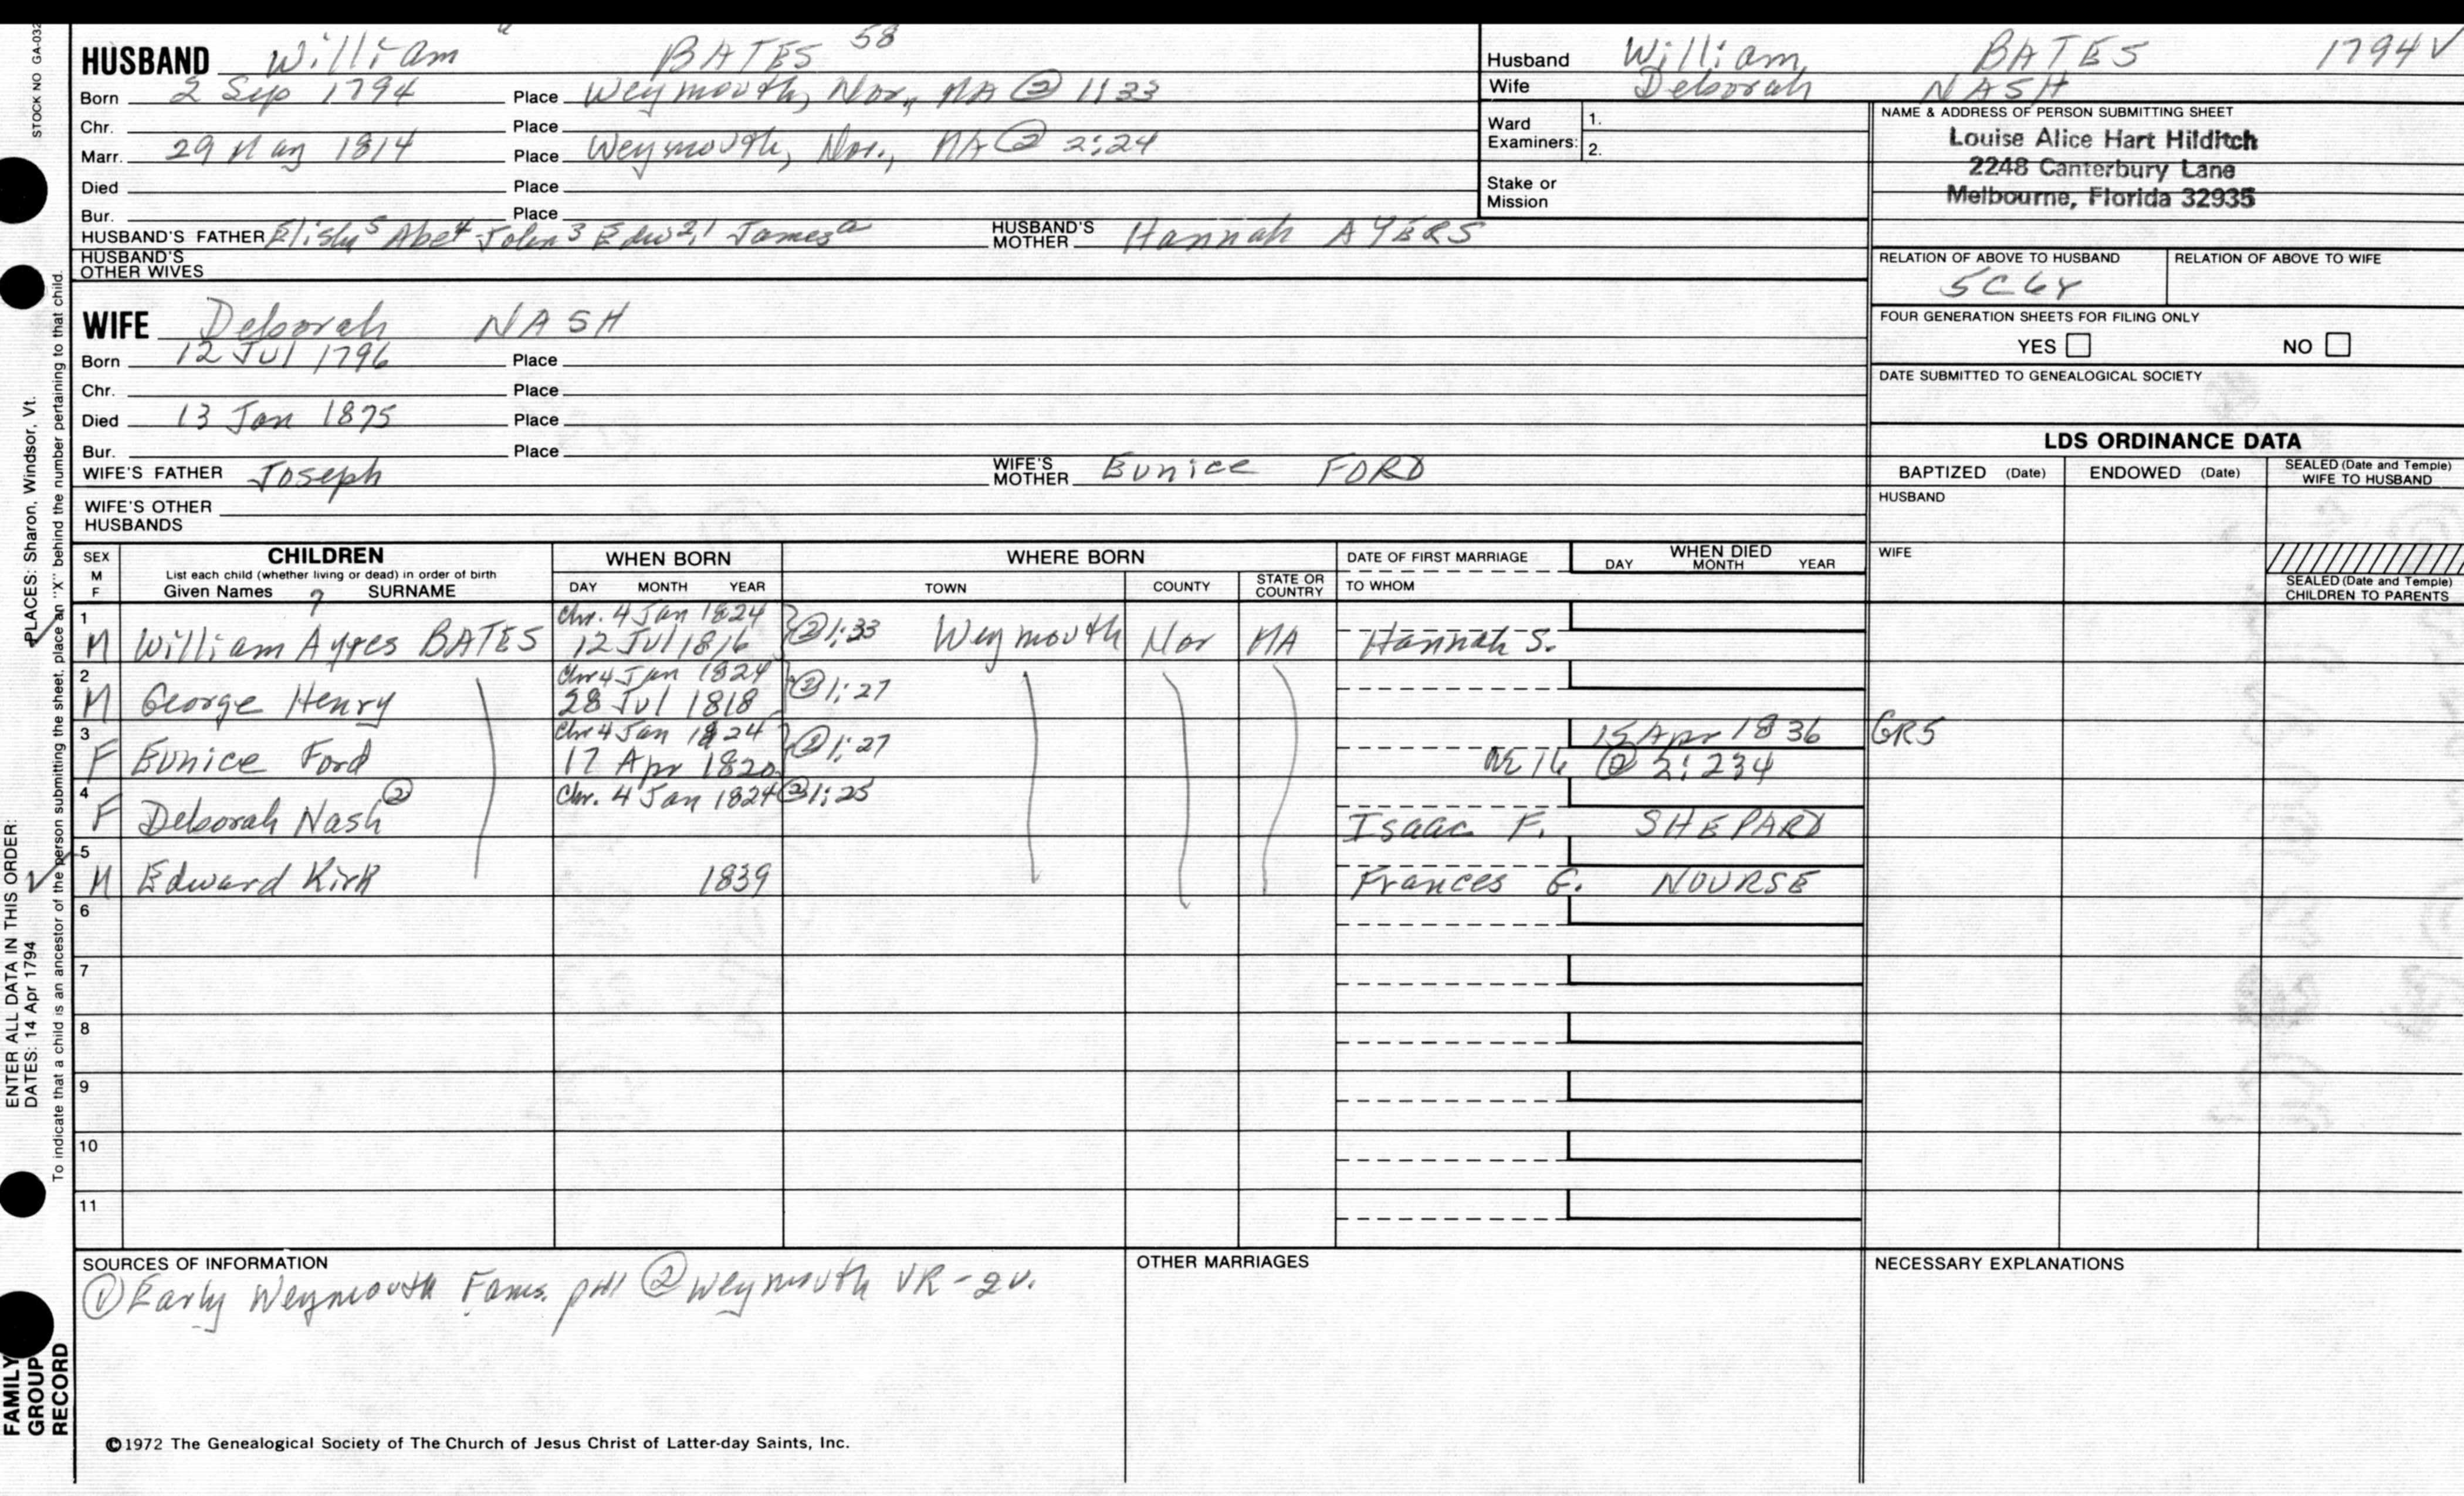 STOCK NO GA-032
HUSBAND William BATES 58
Born 2 Sep 1794 Place Weymouth, Nor., MA @ 1:33
Chr. Place
Marr. 29 May 1814 Place Weymouth, Nor., MA @ 2:24
Died Place
Bur. Place
HUSBAND'S FATHER Elisha5 Abel4 John3 Edw2,1 Jamesa HUSBAND'S MOTHER Hannah AYERS
HUSBAND'S OTHER WIVES
Husband William BATES 1794 V
Wife Deborah NASH
Ward Examiners: 1.
2.
Stake or Mission
NAME & ADDRESS OF PERSON SUBMITTING SHEET
Louise Alice Hart Hilditch
2248 Canterbury Lane
Melbourne, Florida 32935
RELATION OF ABOVE TO HUSBAND RELATION OF ABOVE TO WIFE
FOUR GENERATION SHEETS FOR FILING ONLY
YES NO
DATE SUBMITTED TO GENEALOGICAL SOCIETY
WIFE Deborah NASH
Born 12 Jul 1796 Place
Chr. Place
Died 13 Jan 1875 Place
Bur. Place
WIFE'S FATHER Joseph WIFE'S MOTHER Eunice FORD
WIFE'S OTHER HUSBANDS
LDS ORDINANCE DATA
BAPTIZED (Date) ENDOWED (Date) SEALED (Date and Temple) WIFE TO HUSBAND
HUSBAND
WIFE
SEALED (Date and Temple) CHILDREN TO PARENTS
SEX M F CHILDREN WHEN BORN WHERE BORN DATE OF FIRST MARRIAGE WHEN DIED
List each child (whether living or dead) in order of birth DAY MONTH YEAR TOWN COUNTY STATE OR COUNTRY TO WHOM DAY MONTH YEAR
Given Names ? SURNAME
1 Chr. 4 Jan 1824
M William Ayres BATES 12 Jul 1816 @1:33 Weymouth Nor MA Hannah S.
2 Chr 4 Jan 1824
M George Henry 28 Jul 1818 @1:27
3 Chr 4 Jan 1824 15 Apr 1836 GR5
F Eunice Ford 17 Apr 1820 @1:27 AE 16 @ 2:234
4 Chr. 4 Jan 1824 @1:25
F Deborah Nash ② Isaac F. SHEPARD
5
M Edward Kirk 1839 Frances G. NOURSE
6
7
8
9
10
11
SOURCES OF INFORMATION
① Early Weymouth Fams. ② Weymouth VR-2v.
OTHER MARRIAGES
NECESSARY EXPLANATIONS
©1972 The Genealogical Society of The Church of Jesus Christ of Latter-day Saints, Inc.
ENTER ALL DATA IN THIS ORDER:
DATES: 14 Apr 1794 PLACES: Sharon, Windsor, Vt.
To indicate that a child is an ancestor of the person submitting the sheet, place an "X" behind the number pertaining to that child.
FAMILY
GROUP
RECORD